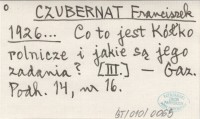 CZUBERNAT Franciszek
1926... Co to jest Kółko
rolnicze i jakie są jego
zadania? [III.] — Gaz.
Podh. 14, nr 16.
BT/010/0065